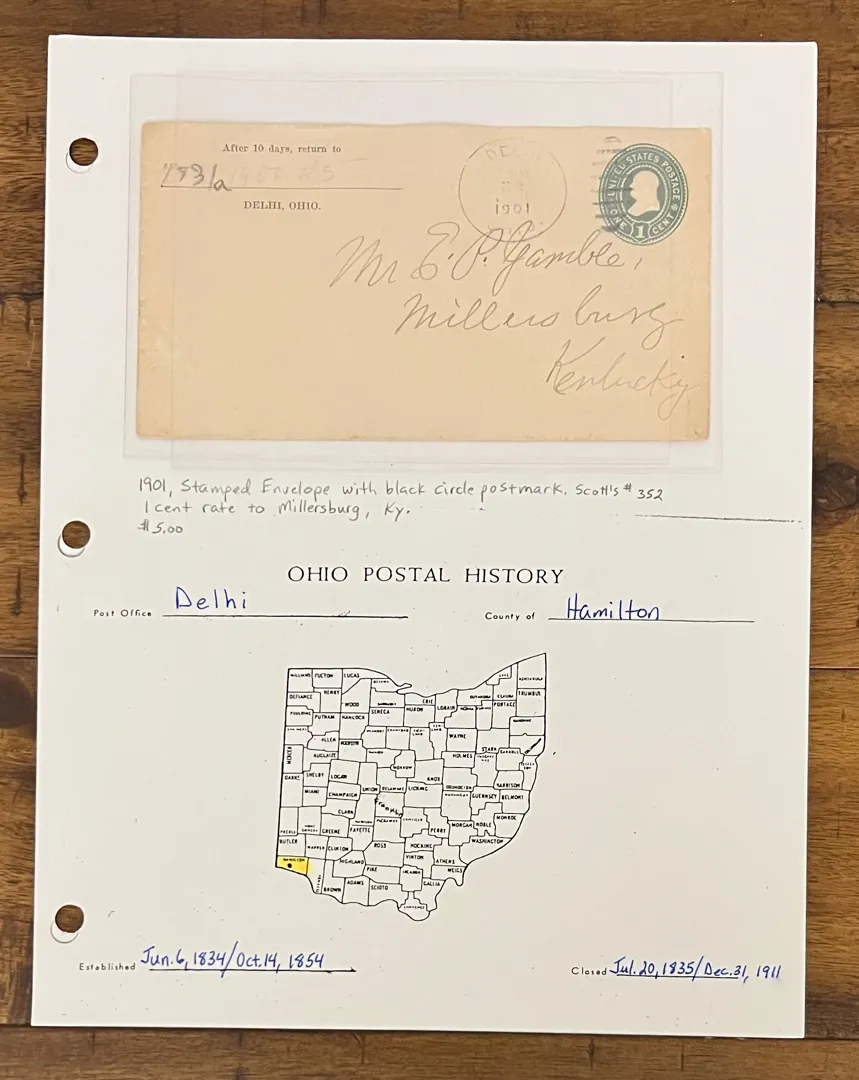 After 10 days, return to
DELHI, OHIO.
1901
UNITED STATES POSTAGE
ONE 1 CENT
Mr E. P. Gamble,
Millersburg
Kentucky
1901, Stamped Envelope with black circle postmark. Scott's # 352
1 cent rate to Millersburg, Ky.
$5.00
OHIO POSTAL HISTORY
Post Office Delhi County of Hamilton
WILLIAMS FULTON LUCAS
DEFIANCE HENRY WOOD ERIE LORAIN PORTAGE TRUMBUL
PAULDING PUTNAM HANCOCK SENECA HURON
ALLEN WAYNE STARK
MERCER AUGLAIZE HOLMES
DARKE SHELBY LOGAN MORROW KNOX HARRISON
MIAMI CHAMPAIGN UNION DELAWARE LICKING GUERNSEY BELMONT
CLARK Franklin
PREBLE GREENE FAYETTE PICKAWAY PERRY MORGAN NOBLE MONROE
BUTLER WARREN CLINTON ROSS HOCKING WASHINGTON
HAMILTON HIGHLAND PIKE VINTON ATHENS MEIGS
BROWN ADAMS SCIOTO GALLIA
LAWRENCE
Established Jun. 6, 1834/Oct. 14, 1854 Closed Jul. 20, 1835/Dec. 31, 1911